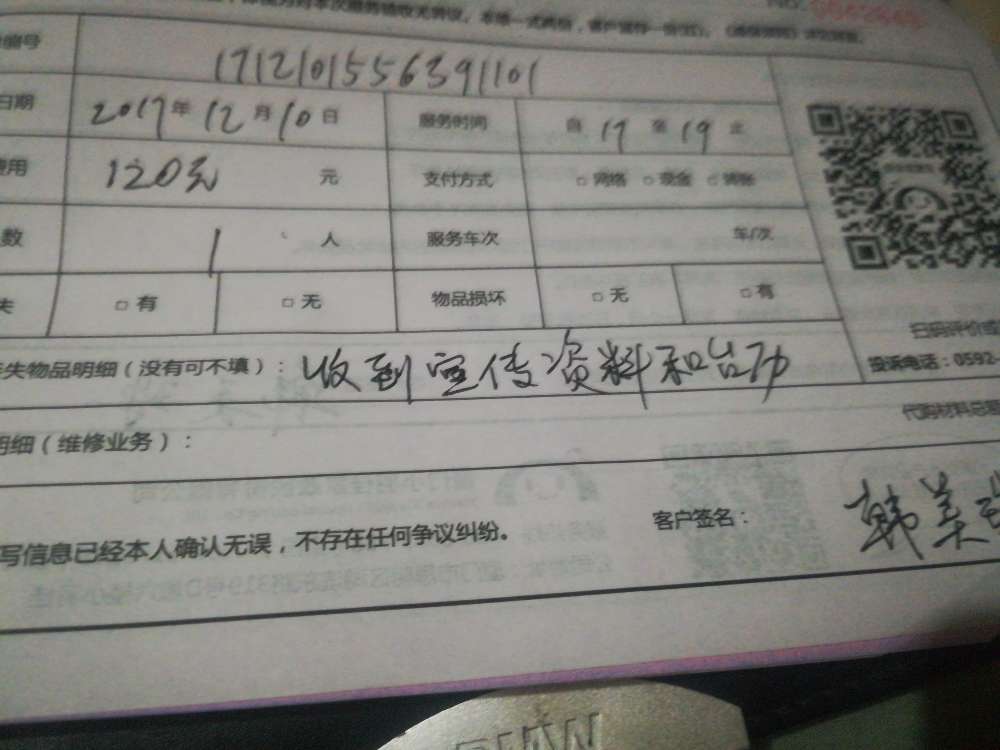 编号 171210155639１101
日期 2017年12月10日 服务时间 自 17 至 19 止
费用 120元 元 支付方式 □ 网络 □ 现金 □ 转账
数 1 人 服务车次 车/次
失 □ 有 □ 无 物品损坏 □ 无 □ 有
扫码评价或
失物品明细（没有可不填）： 收到宣传资料和台历
投诉电话：0592
代购材料总
明细（维修业务）：
写信息已经本人确认无误，不存在任何争议纠纷。 客户签名： 韩美